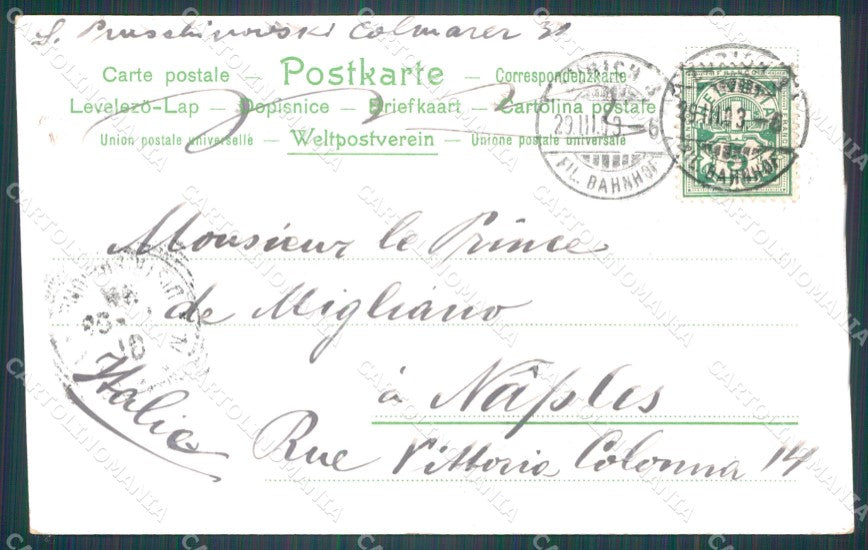 S. Pruschinowski Colmarer 31
Carte postale — Postkarte — Correspondenzkarte
Levelezö-Lap — Dopisnice — Briefkaart — Cartolina postale
Union postale universelle — Weltpostverein — Unione postale universale
ZÜRICH 3
29.III.03–6
FIL. BAHNHOF
HELVETIA
5
FRANCO
Monsieur le Prince
de Migliano
à Nâples
Italie
Rue Vittoria Colonna 14
CARTOLINOMANIA